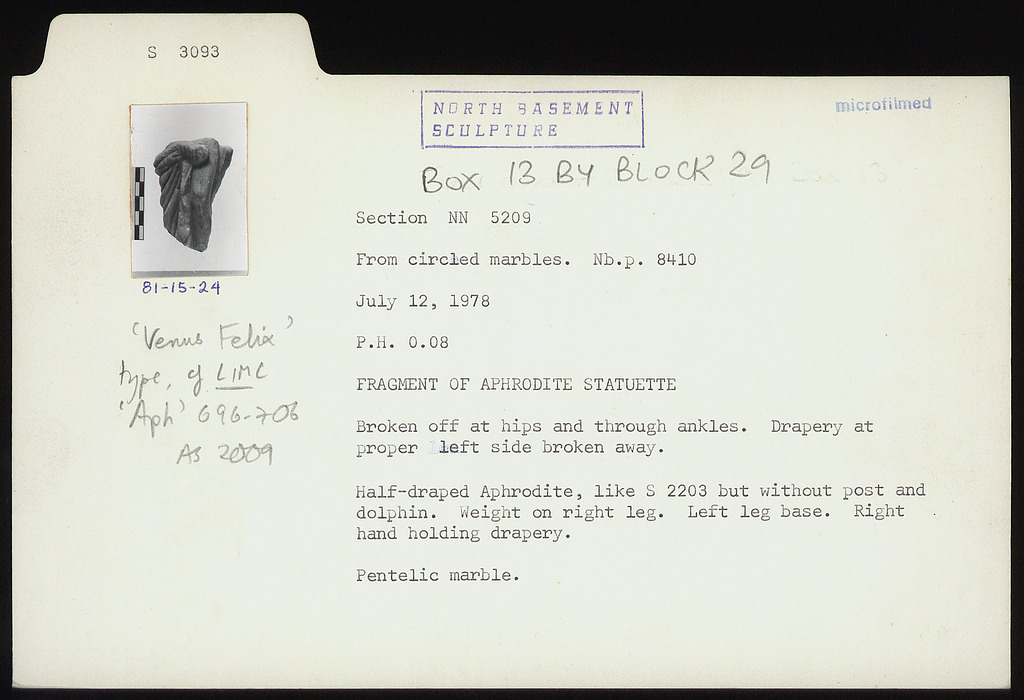 S 3093
NORTH BASEMENT
SCULPTURE
microfilmed
BOX 13 BY BLOCK 29
Section NN 5209
From circled marbles. Nb.p. 8410
July 12, 1978
P.H. 0.08
FRAGMENT OF APHRODITE STATUETTE
Broken off at hips and through ankles. Drapery at
proper left side broken away.
Half-draped Aphrodite, like S 2203 but without post and
dolphin. Weight on right leg. Left leg base. Right
hand holding drapery.
Pentelic marble.
81-15-24
'Venus Felix'
type, cf LIMC
'Aph' 696-706
AS 2009